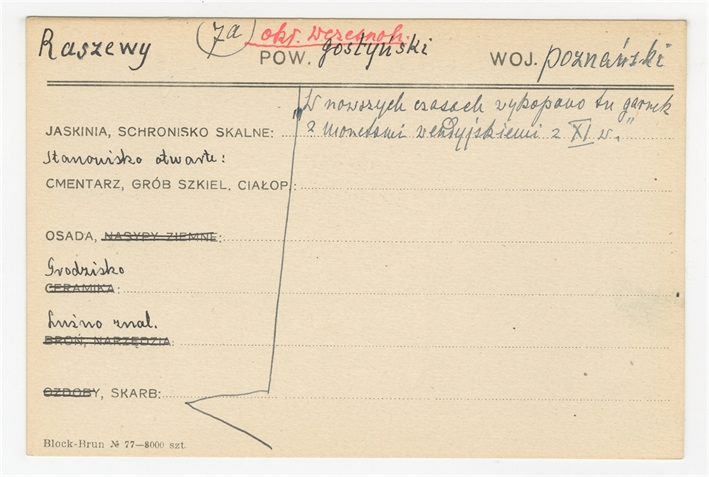 Raszewy 7a okr. wczesnoh.
POW. gostyński WOJ. poznański
"W nowszych czasach wykopano tu garnek
JASKINIA, SCHRONISKO SKALNE: z monetami wendyjskiemi z XI w."
Stanowisko otwarte:
CMENTARZ, GRÓB SZKIEL, CIAŁOP.:
OSADA, NASYPY ZIEMNE:
Grodzisko
CERAMIKA:
Luźno znal.
BROŃ, NARZĘDZIA:
OZDOBY, SKARB:
Block-Brun № 77—8000 szt.